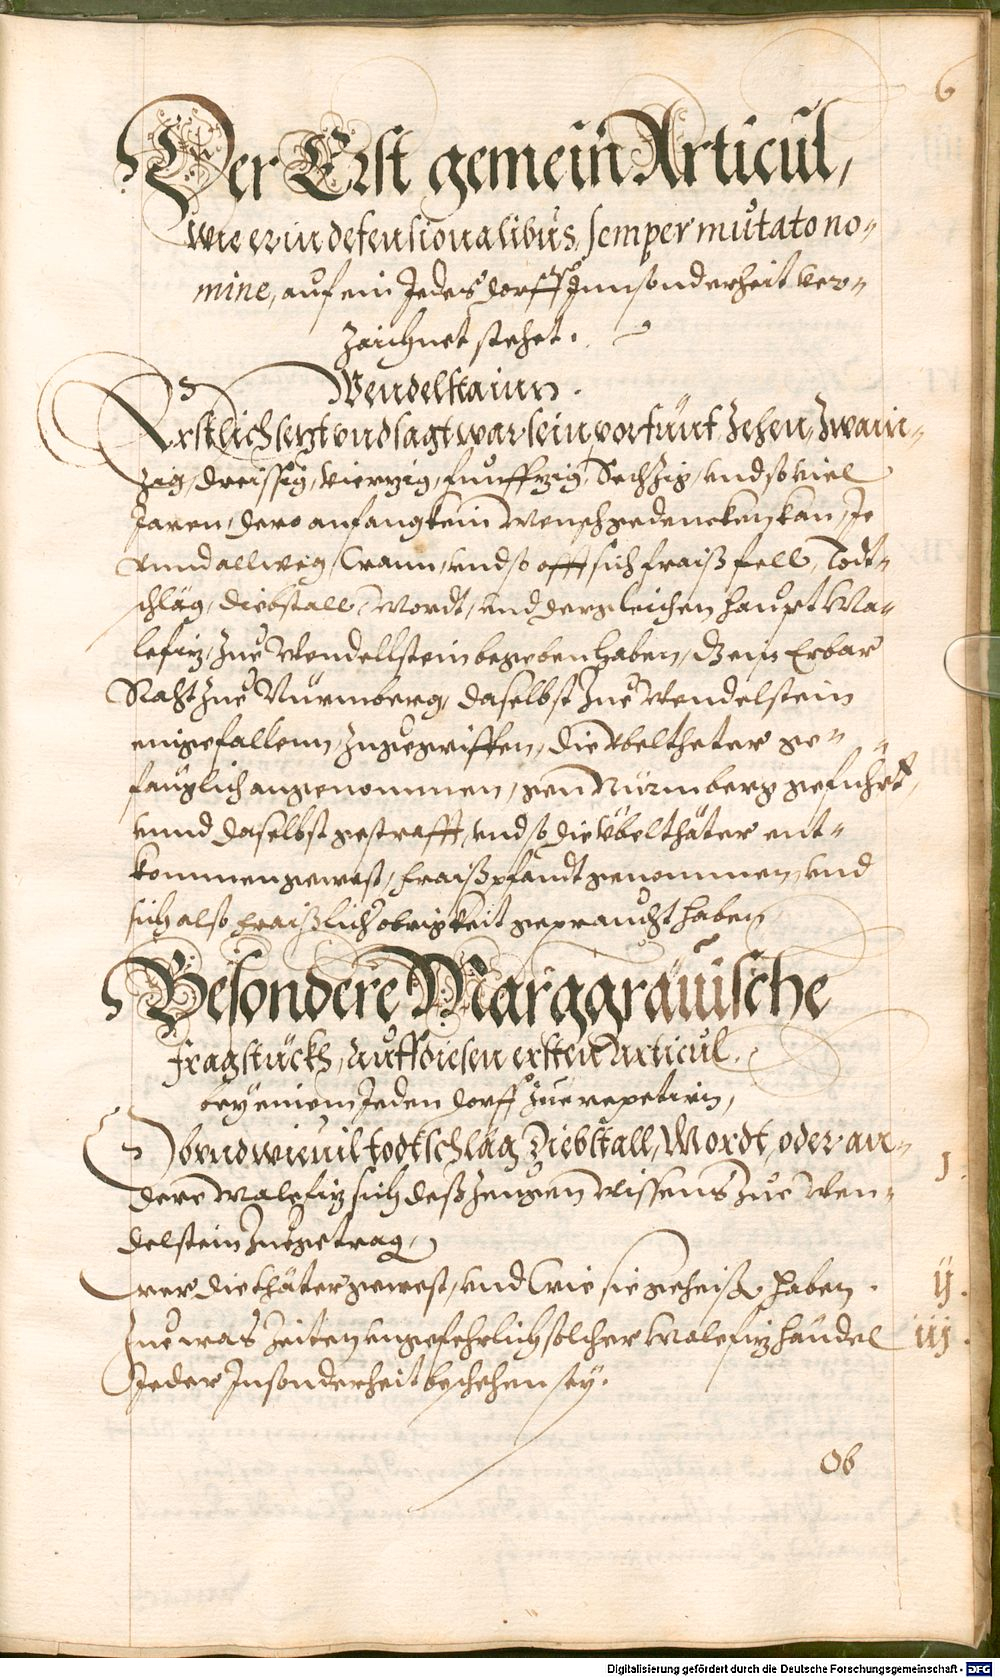 6
Der Erst gemein Articul,
wie er in defensionalibus, semper mutato no-
mine, auf ein Jedes dorff Innsonderheit ver-
zaichnet stehet.
Wendelstainn.
Erstlich setzt vnd sagt war sein vor fünf, Zehen, Zwain-
zig, dreissig, viertzig, funfftzig, Sechzig, vnd so viel
Jaren, dero anfang kein Mensch gedencken kan, Je
vnnd allweg, Wann, vnd so offt sich fraiß fell, Todt-
schläg, diebstall, Mordt, vnd dergleichen haupt Ma-
lefitz, zue Wendellstein begeben haben, Das ein Erbar
Raht zue Nürmberg, daselbst zue Wendelstein
eingefallenn, zugegriffen, die vbeltheter ge-
fänglich angenommen, gen Nürmberg geführt,
vnnd daselbst gestrafft, vnd so die Übelthäter ent-
kommen gewest, fraißpfandt genommen, vnd
sich also fraißlich obrigkeit gepraucht haben,
Besondere Marggräuische
fragstückh, auff diesen ersten Articul,
bey einem Jeden dorff zue repetirn,
Ob vnd wieuil todtschläg, Diebstall, Mordt, oder an-
dere Malefitz sich deß Zeugen Wissens zue Wen-
delstein zugetrag,
J.
wer die thäter gewest, vnd wie sie geheiß. haben.
ij.
Zue was Zeiten vngefehrlich solcher Malefitz händel
iij.
Jeder Insonderheit beschehen sey.
Ob
Digitalisierung gefördert durch die Deutsche Forschungsgemeinschaft - DFG